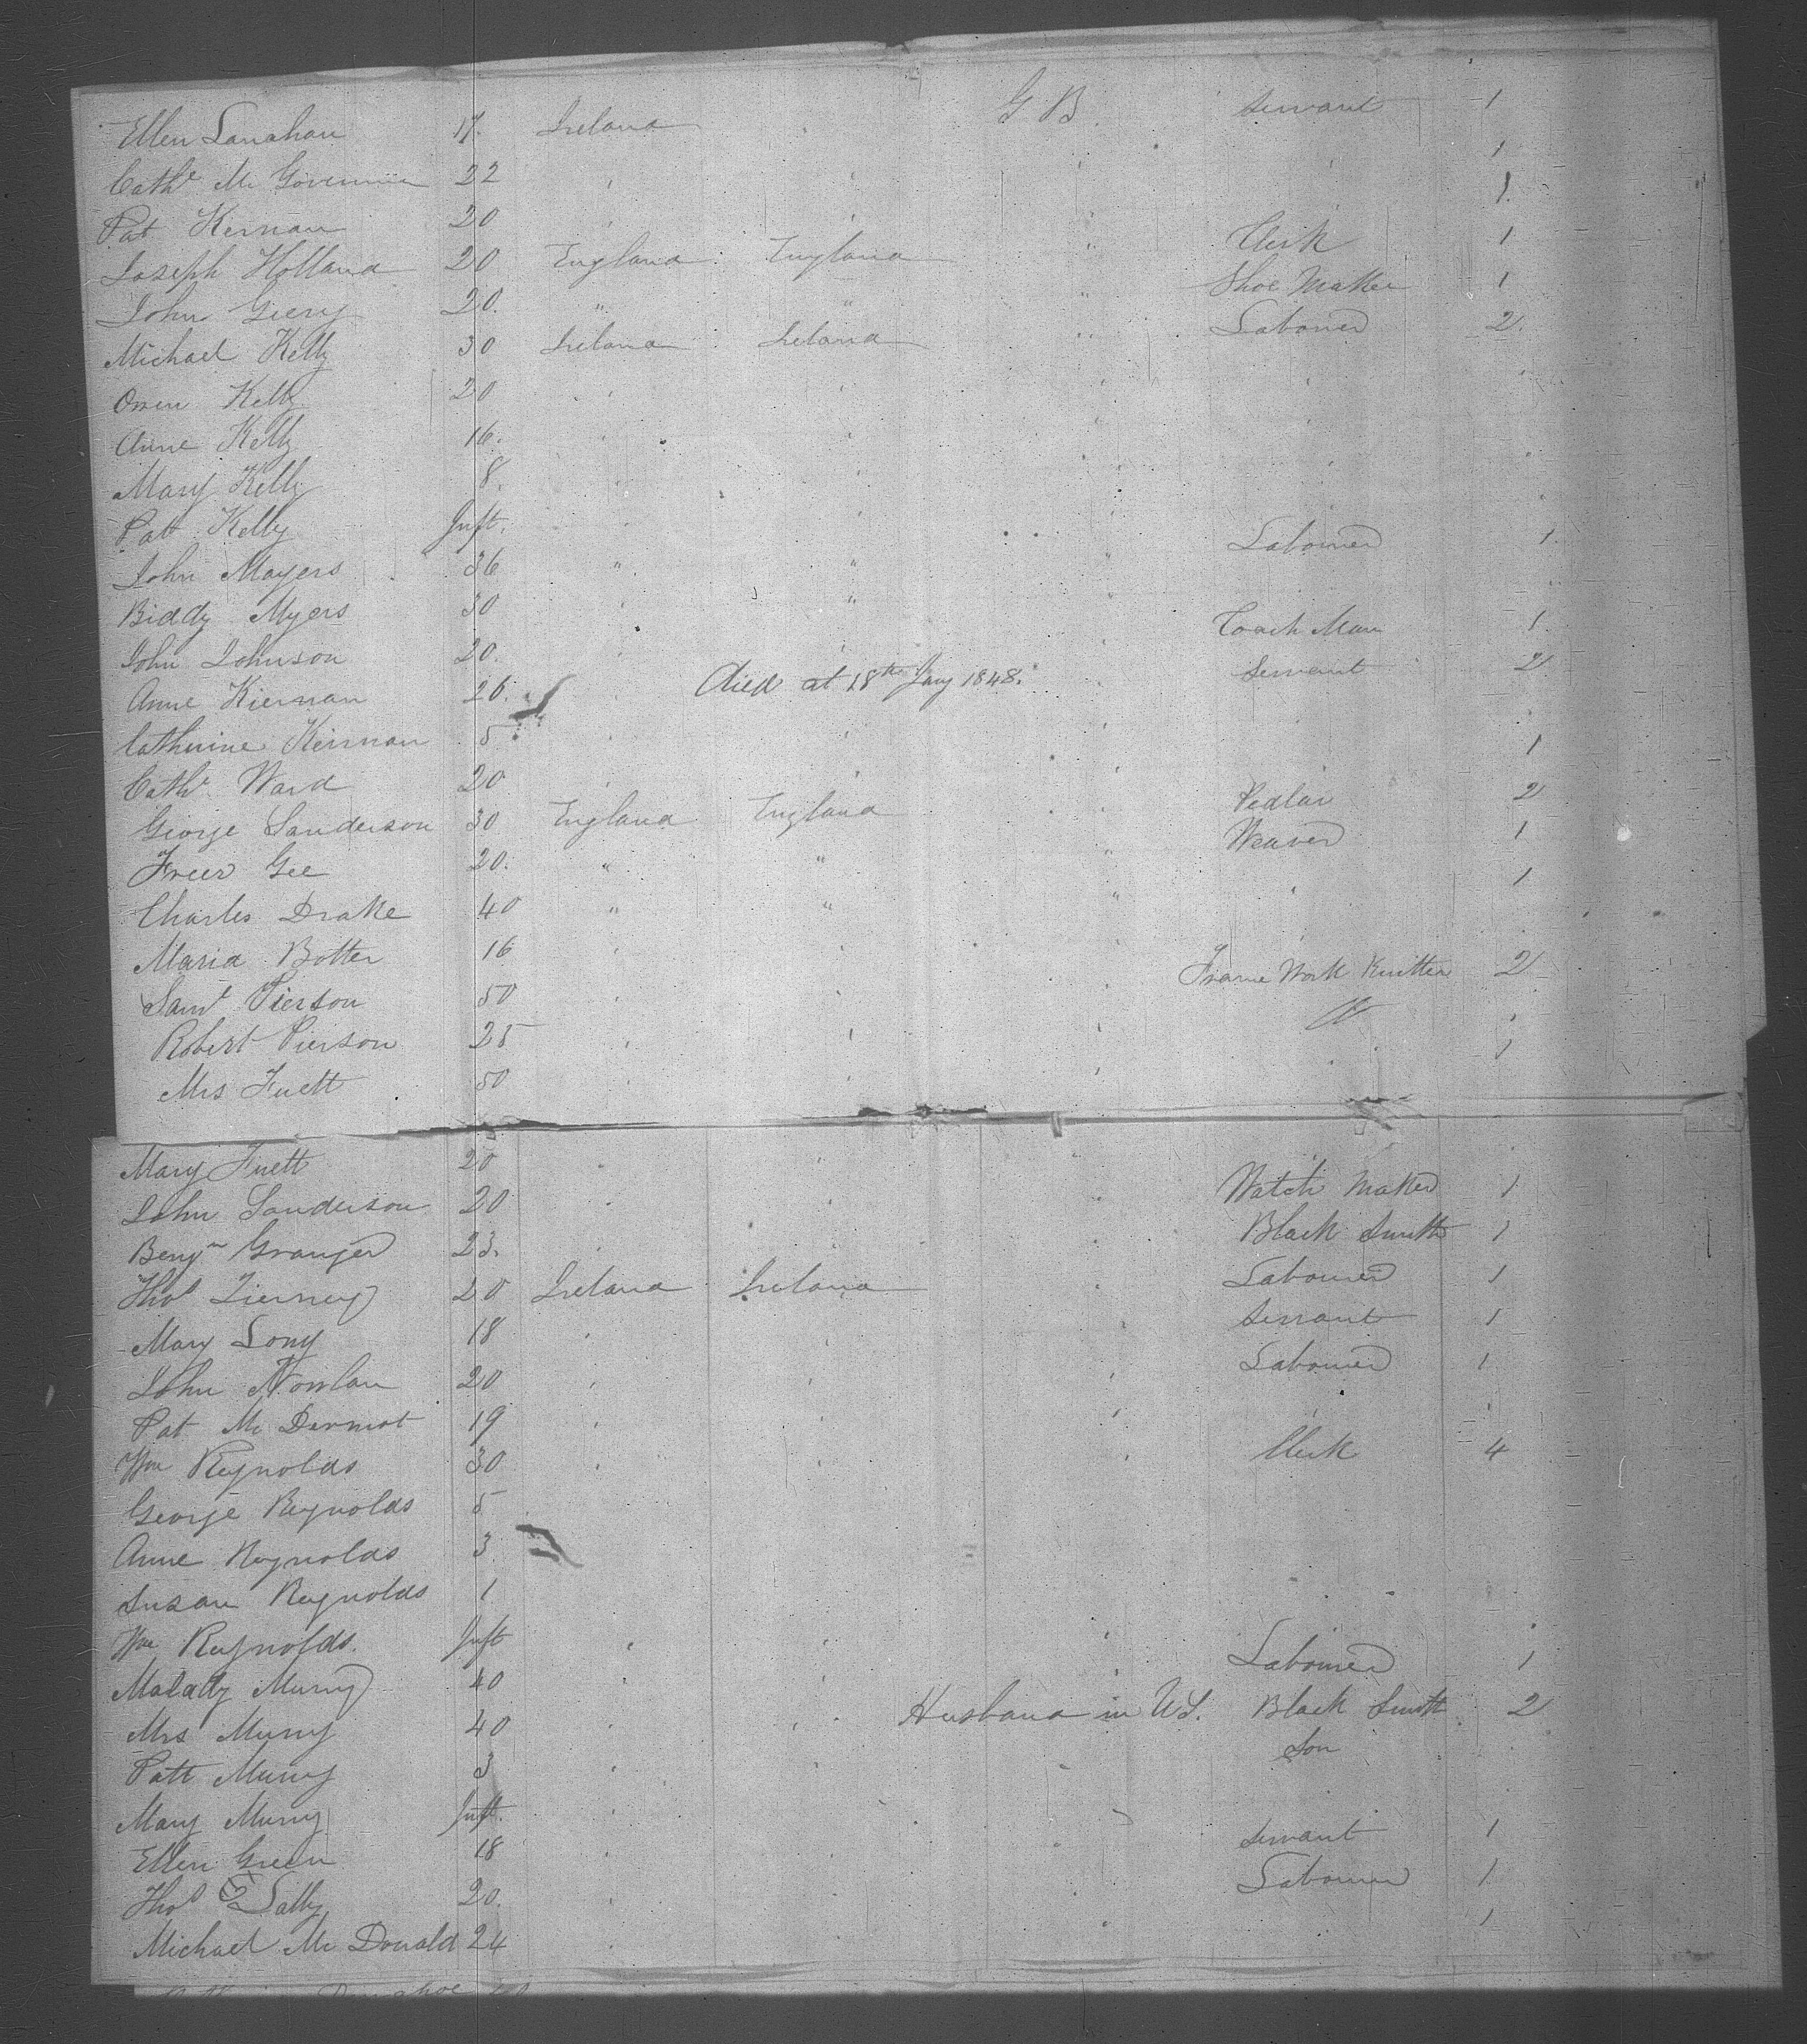 Ellen Lanahan 17. Ireland G B. Servant 1
Cathe Mc Governin 22 " " 1
Pat Kernan 20 " " " 1.
Joseph Holland 20 England England " Clerk 1
John Geery 20. " " " Shoe Maker 1
Michael Kelly 30 Ireland Ireland " Labourer 2.
Owen Kelly 20 " " " "
Anne Kelly 16. " " "
Mary Kelly 8. " " "
Patt Kelly Inft. " "
John Mayers 36 " " " Labourer 1.
Biddy Myers 30 " "
John Johnson 20. " Coach Man 1.
Anne Kiernan 26. Died at 18th Jany 1848. " Servant 2
Catherine Keirnan 5 " " "
Cathe Ward 20 " " " 1
George Sanderson 30 England England " Pedlar 2
Freer Gee 20. " " " Weaver 1
Charles Drake 40 " " " " 1
Maria Botter 16 " " "
Saml Pierson 50 " " " Frame Work Knitter 2
Robert Pierson 25 " " " "
Mrs Fuett 50 " " " 1
Mary Fuett 20 " " "
John Sanderson 20 " " " Watch Maker 1
Benjn Granger 23. " " Black Smith 1
Thos Tierney 20 Ireland Ireland " Labourer 1
Mary Long 18 " " Servant 1
John Nowlan 20 " " " Labourer 1
Pat Mc Dermot 19 " " " "
Wm Reynolds 30 " " " Clerk 4
George Reynolds 5
Anne Reynolds 3
Susan Reynolds 1
Wm Reynolds. Inft " " "
Malatty Murry 40 " " Labourer 1
Mrs Murry 40 " " Husband in US. Black Smith 2
Patt Murry 3 " " Son
Mary Murry Inft. "
Ellen Green 18 " " Servant 1
Thos Lally 20. " " Labourer 1
Michael Mc Donald 24 " " 1